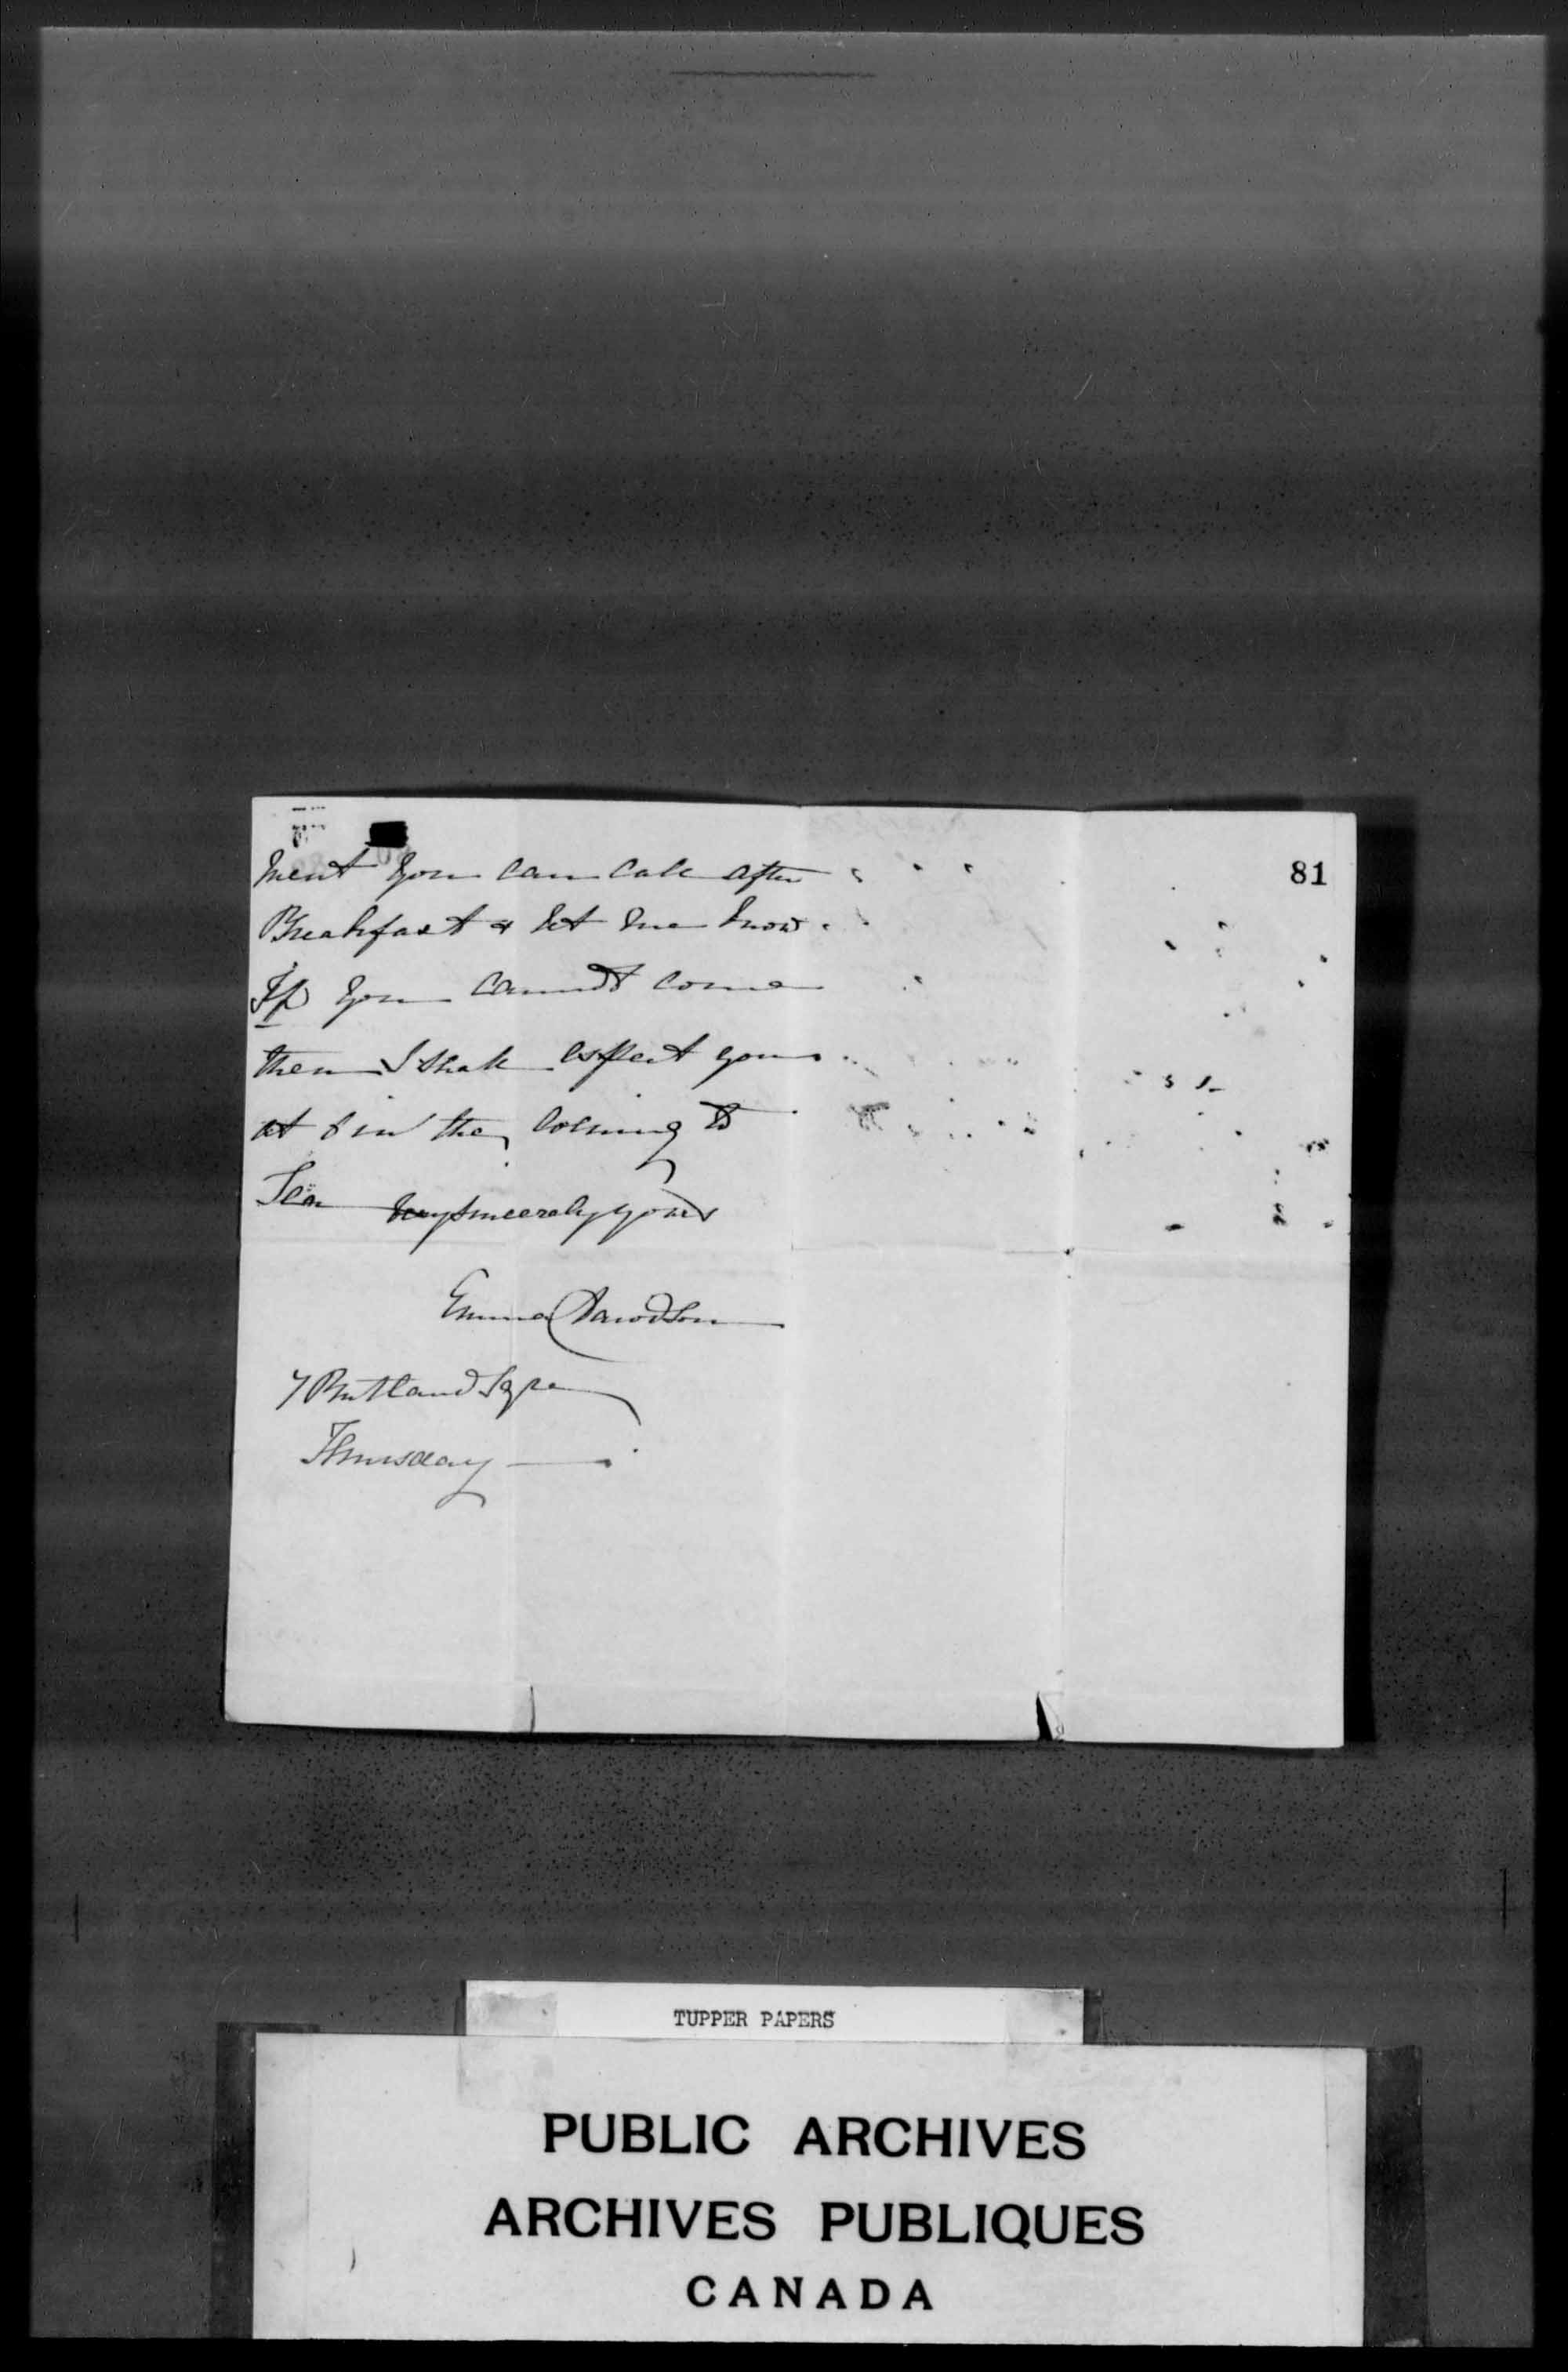 81
ment you can call after
Breakfast & let me know.
If you cannot come
then I shall expect you
at 8 in the evening to
Tea Very sincerely yours
Emma Davidson
7 Rutland Sqre
Thursday
TUPPER PAPERS
PUBLIC ARCHIVES
ARCHIVES PUBLIQUES
CANADA